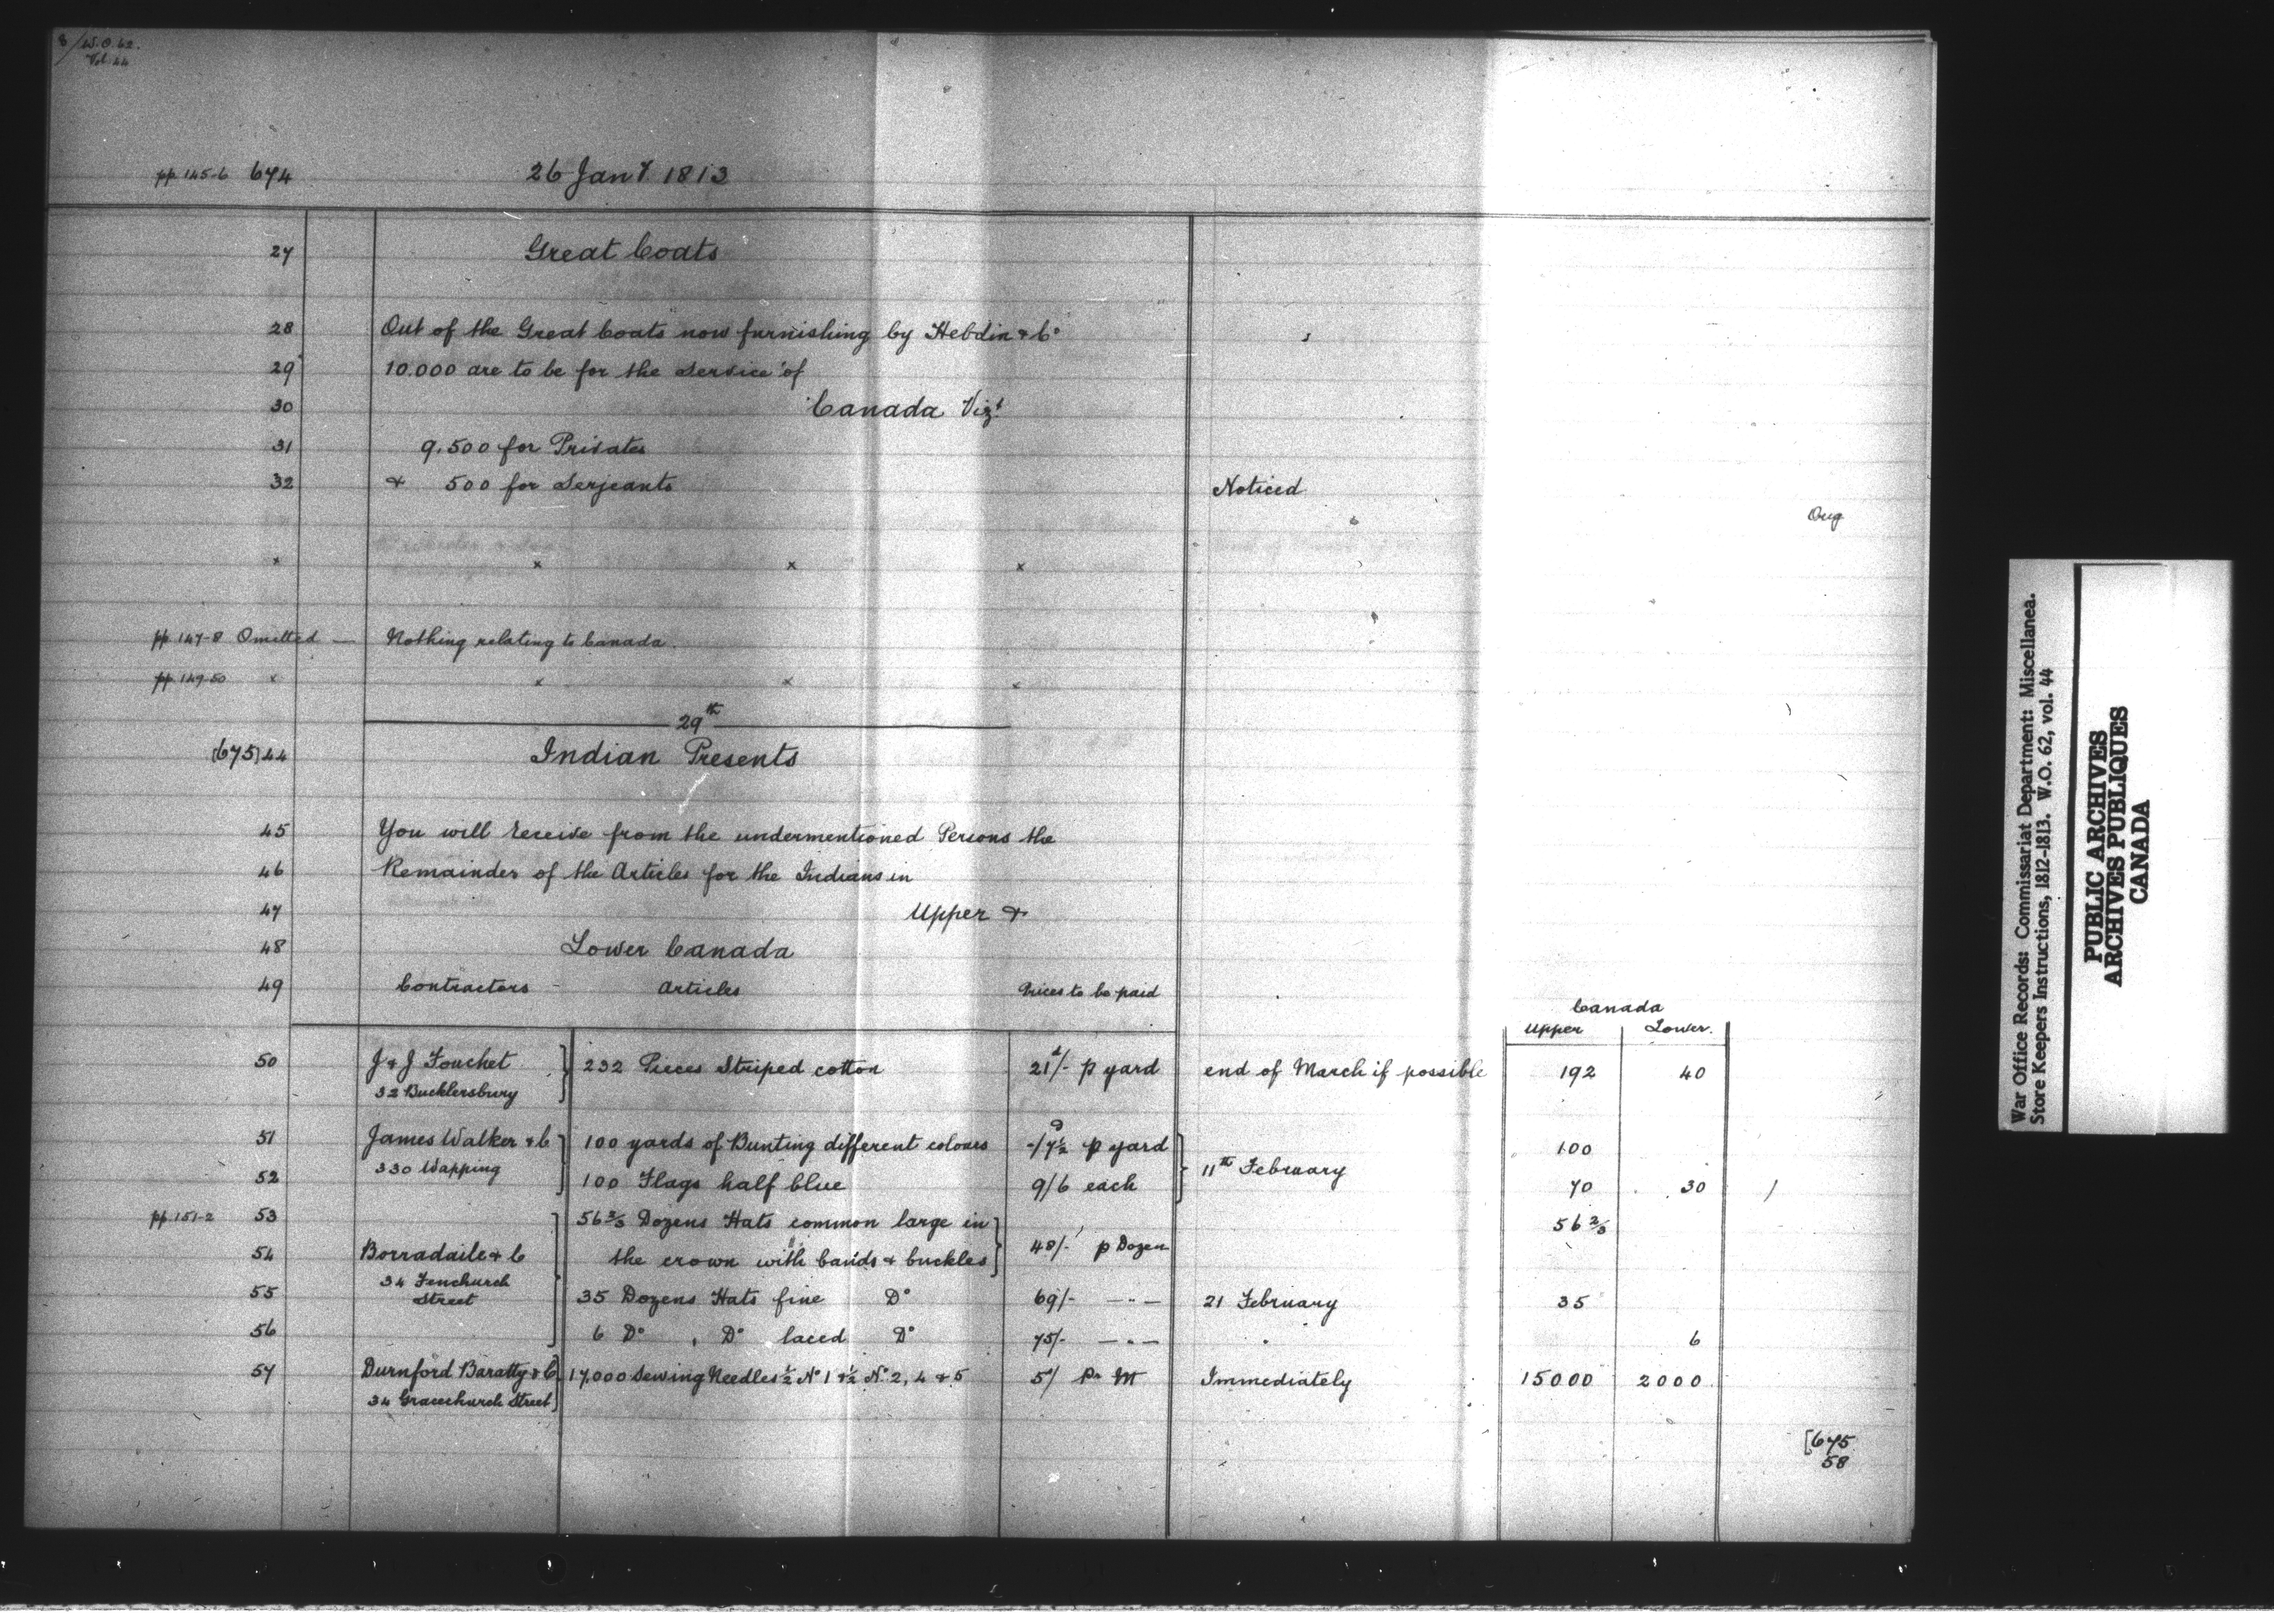 8/W.O. 62.
Vol. 44
pp. 145-6 674 26 Jany. 1813
27 Great Coats
28 Out of the Great Coats now furnishing by Hebdin & Co
29 10.000 are to be for the Service of
30 Canada Vizt
31 9.500 for Privates
32 & 500 for Serjeants Noticed
Orig
x x x x
pp. 147-8 Omitted — Nothing relating to Canada.
pp. 149-50 x x x x
29th
(675) 44 Indian Presents
45 You will receive from the undermentioned Persons the
46 Remainder of the Articles for the Indians in
47 Upper &
48 Lower Canada
49 Contractors Articles Prices to be paid
Canada
Upper Lower.
50 J & J Fouchet 232 Pieces Striped cotton 21d/- p yard end of March if possible 192 40
32 Bucklersbury
51 James Walker & C 100 yards of Bunting different colours -/7½ p yard 100
330 Wapping 11th February
52 100 Flags half blue 9/6 each 70 30
pp. 151-2 53 56⅔ Dozens Hats common large in 56⅔
54 Borradaile & C the crown with bands & buckles 48/- p Dozen
34 Fenchurch
Street
55 35 Dozens Hats fine Do 69/- — " — 21 February 35
56 6 Do Do laced Do 75/- — " — 6
57 Durnford Baratty & C 17,000 Sewing Needles ½ No 1 & ½ No 2, 4 & 5 5/ Pr M Immediately 15000 2000
34 Gracechurch Street
[675
58
War Office Records: Commissariat Department: Miscellanea.
Store Keepers Instructions, 1812-1813. W.O. 62, vol. 44
PUBLIC ARCHIVES
ARCHIVES PUBLIQUES
CANADA